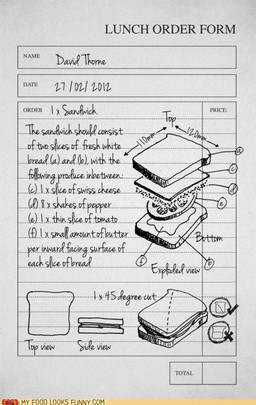 LUNCH ORDER FORM
NAME
David Thorne
DATE
27/02/2012
ORDER
1 x Sandwich
PRICE:
The sandwich should consist
of two slices of fresh white
bread (a) and (b), with the
following produce inbetween:
(c) 1 x slice of swiss cheese
(d) 8 x shakes of pepper
(e) 1 x thin slice of tomato
(f) 1 x small amount of butter
per inward facing surface of
each slice of bread
Top
110mm
120mm
a
c
d
e
Bottom
f
b
Exploded view
1 x 45 degree cut
Top view
Side view
TOTAL
MY FOOD LOOKS FUNNY.COM